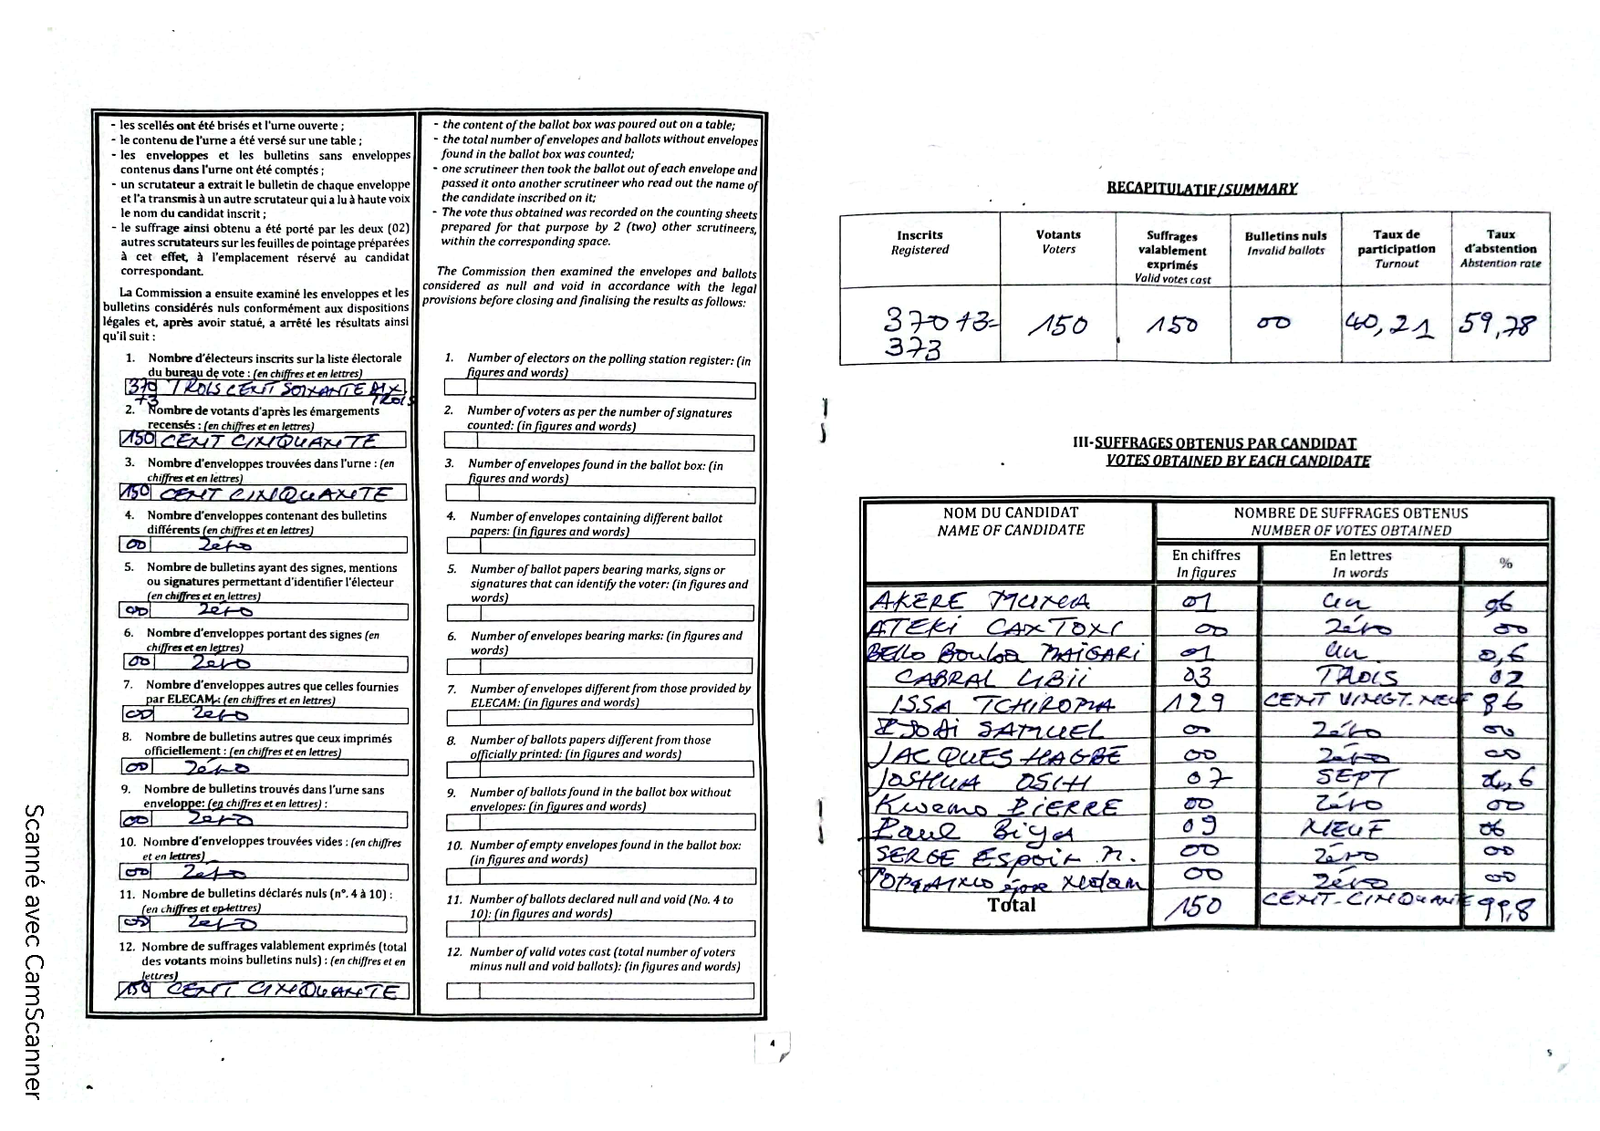 - les scellés ont été brisés et l'urne ouverte ;
- le contenu de l'urne a été versé sur une table ;
- les enveloppes et les bulletins sans enveloppes
contenus dans l'urne ont été comptés ;
- un scrutateur a extrait le bulletin de chaque enveloppe
et l'a transmis à un autre scrutateur qui a lu à haute voix
le nom du candidat inscrit ;
- le suffrage ainsi obtenu a été porté par les deux (02)
autres scrutateurs sur les feuilles de pointage préparées
à cet effet, à l'emplacement réservé au candidat
correspondant.
La Commission a ensuite examiné les enveloppes et les
bulletins considérés nuls conformément aux dispositions
légales et, après avoir statué, a arrêté les résultats ainsi
qu'il suit :
1. Nombre d'électeurs inscrits sur la liste électorale
du bureau de vote : (en chiffres et en lettres)
370 TROIS CENT SOIXANTE DIX
+3 TROIS
2. Nombre de votants d'après les émargements
recensés : (en chiffres et en lettres)
150 CENT CINQUANTE
3. Nombre d'enveloppes trouvées dans l'urne : (en
chiffres et en lettres)
150 CENT CINQUANTE
4. Nombre d'enveloppes contenant des bulletins
différents (en chiffres et en lettres)
00 Zéro
5. Nombre de bulletins ayant des signes, mentions
ou signatures permettant d'identifier l'électeur
(en chiffres et en lettres)
00 Zéro
6. Nombre d'enveloppes portant des signes (en
chiffres et en lettres)
00 Zéro
7. Nombre d'enveloppes autres que celles fournies
par ELECAM : (en chiffres et en lettres)
00 Zéro
8. Nombre de bulletins autres que ceux imprimés
officiellement : (en chiffres et en lettres)
00 Zéro
9. Nombre de bulletins trouvés dans l'urne sans
enveloppe: (en chiffres et en lettres) :
00 Zéro
10. Nombre d'enveloppes trouvées vides : (en chiffres
et en lettres)
00 Zéro
11. Nombre de bulletins déclarés nuls (n°. 4 à 10) :
(en chiffres et en lettres)
00 Zéro
12. Nombre de suffrages valablement exprimés (total
des votants moins bulletins nuls) : (en chiffres et en
lettres)
150 CENT CINQUANTE
- the content of the ballot box was poured out on a table;
- the total number of envelopes and ballots without envelopes
found in the ballot box was counted;
- one scrutineer then took the ballot out of each envelope and
passed it onto another scrutineer who read out the name of
the candidate inscribed on it;
- The vote thus obtained was recorded on the counting sheets
prepared for that purpose by 2 (two) other scrutineers,
within the corresponding space.
The Commission then examined the envelopes and ballots
considered as null and void in accordance with the legal
provisions before closing and finalising the results as follows:
1. Number of electors on the polling station register: (in
figures and words)
2. Number of voters as per the number of signatures
counted: (in figures and words)
3. Number of envelopes found in the ballot box: (in
figures and words)
4. Number of envelopes containing different ballot
papers: (in figures and words)
5. Number of ballot papers bearing marks, signs or
signatures that can identify the voter: (in figures and
words)
6. Number of envelopes bearing marks: (in figures and
words)
7. Number of envelopes different from those provided by
ELECAM: (in figures and words)
8. Number of ballots papers different from those
officially printed: (in figures and words)
9. Number of ballots found in the ballot box without
envelopes: (in figures and words)
10. Number of empty envelopes found in the ballot box:
(in figures and words)
11. Number of ballots declared null and void (No. 4 to
10): (in figures and words)
12. Number of valid votes cast (total number of voters
minus null and void ballots): (in figures and words)
4
Scanné avec CamScanner
RECAPITULATIF/SUMMARY
Inscrits Votants Suffrages valablement exprimés Bulletins nuls Taux de participation Taux d'abstention
Registered Voters Valid votes cast Invalid ballots Turnout Abstention rate
370+3= 150 150 00 40,21 59,78
373
III-SUFFRAGES OBTENUS PAR CANDIDAT
VOTES OBTAINED BY EACH CANDIDATE
NOM DU CANDIDAT NOMBRE DE SUFFRAGES OBTENUS
NAME OF CANDIDATE NUMBER OF VOTES OBTAINED
En chiffres En lettres %
In figures In words
AKERE MUNA 01 Un
ATEKI CAXTON 00 Zéro 00
BELLO Bouba MAIGARI 01 Un 0,6
CABRAL LIBII 03 TROIS 02
ISSA TCHIROMA 129 CENT VINGT-NEUF 86
SAMUEL 00 Zéro 00
JACQUES HAGBE 00 Zéro 00
JOSHUA OSIH 07 SEPT 4,6
Kwemo PIERRE 00 Zéro 00
Paul BiyA 09 NEUF 06
SERGE ESPOIR M. 00 Zéro 00
00 Zéro 00
Total 150 CENT-CINQUANTE 99,8
5